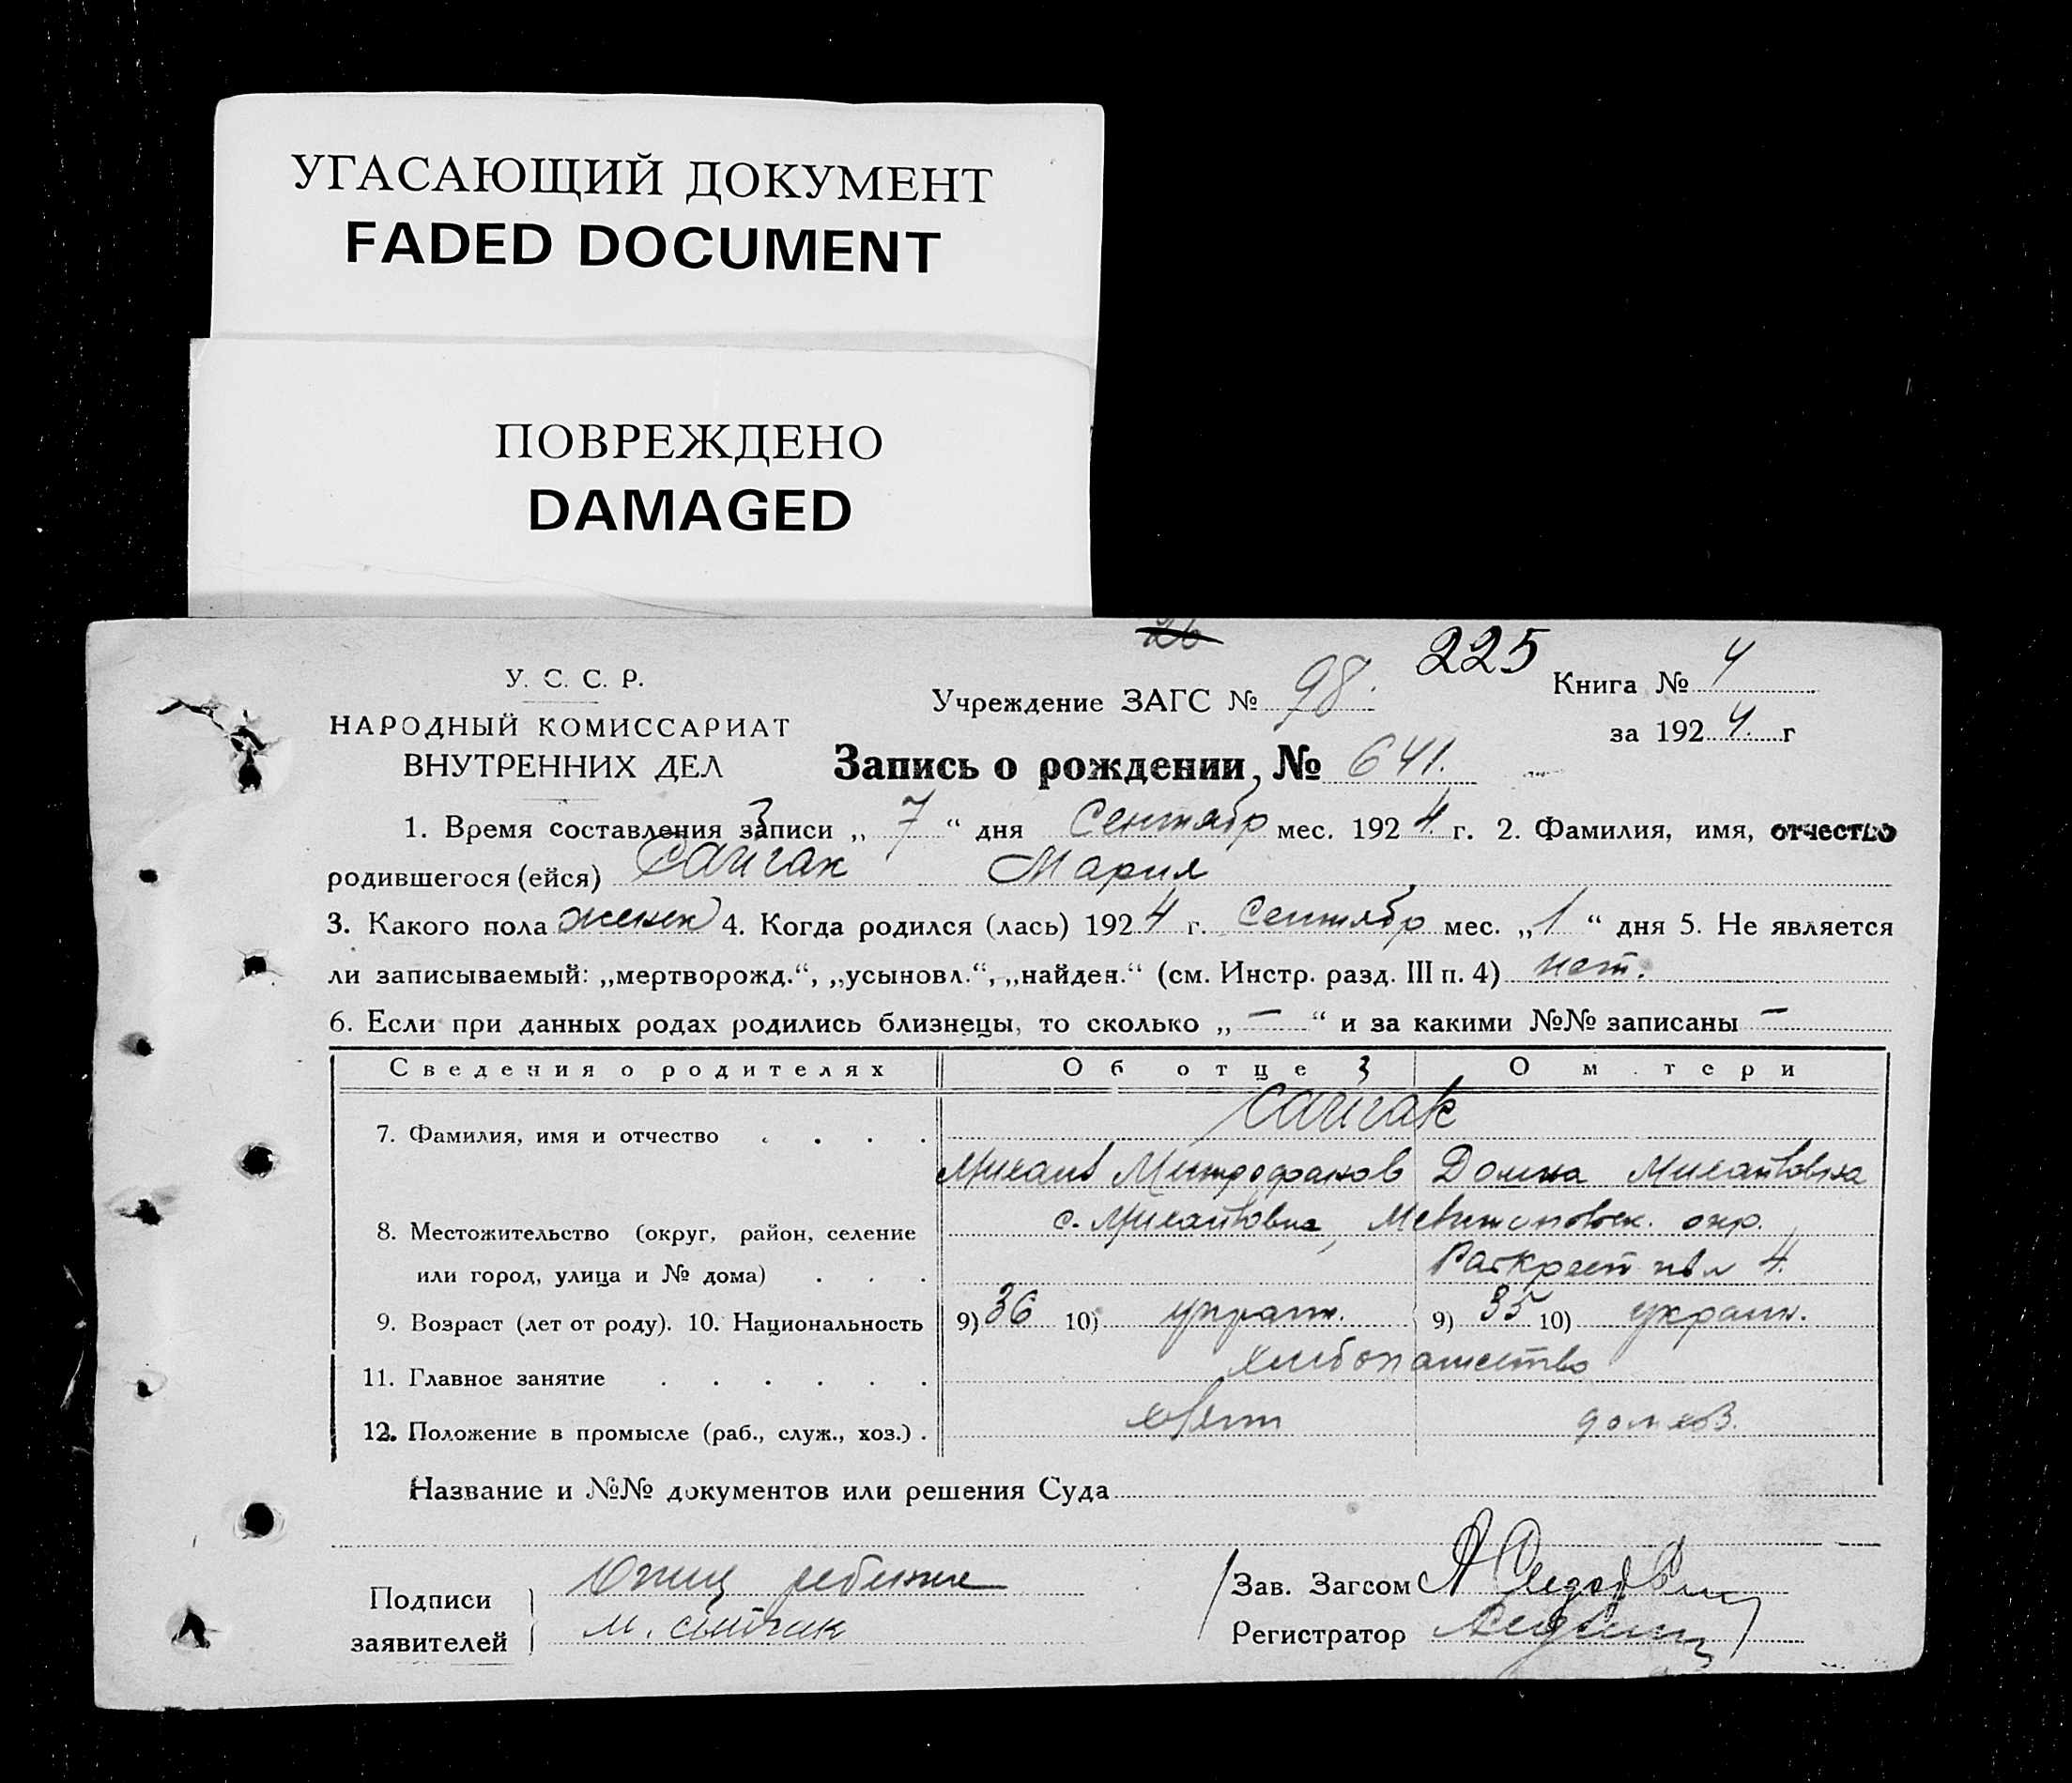 УГАСАЮЩИЙ ДОКУМЕНТ
FADED DOCUMENT
ПОВРЕЖДЕНО
DAMAGED
26
225
У. С. С. Р.
НАРОДНЫЙ КОМИССАРИАТ
ВНУТРЕННИХ ДЕЛ
Учреждение ЗАГС № 98.
Книга № 4
за 1924 г
Запись о рождении, № 641.
1. Время составления записи „ 7 “ дня Сентябр мес. 1924 г. 2. Фамилия, имя, отчество
родившегося (ейся) Сайгак Мария
3. Какого пола женск 4. Когда родился (лась) 1924 г. Сентябр мес. „ 1 “ дня 5. Не является
ли записываемый: „мертворожд.“, „усыновл.“, „найден.“ (см. Инстр. разд. III п. 4) нет.
6. Если при данных родах родились близнецы, то сколько „ — “ и за какими №№ записаны —
Сведения о родителях Об отце О м тери
Сайгак
7. Фамилия, имя и отчество
Михаил Митрофанов Домна Михайловна
8. Местожительство (округ, район, селение с. Михайловка, Мелитопольск. окр.
или город, улица и № дома) 4.
9. Возраст (лет от роду). 10. Национальность 9) 36 10) украин. 9) 35 10) украин.
11. Главное занятие хлибопашество
12. Положение в промысле (раб., служ., хоз.) домхоз.
Название и №№ документов или решения Суда
Подписи заявителей
М. Сайгак
Зав. Загсом
Регистратор